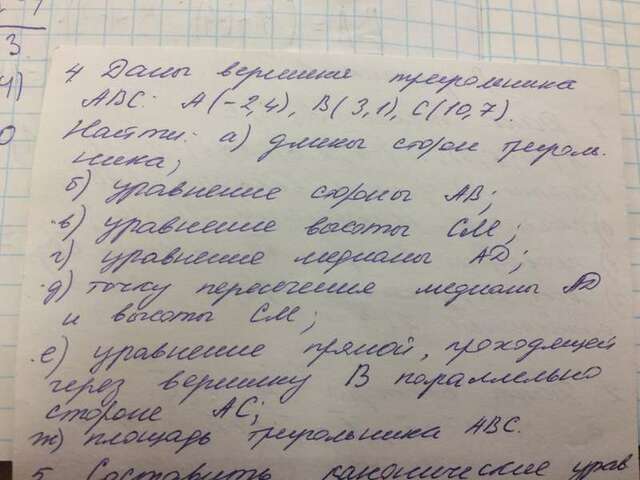 3
4)
0
4 Даны вершины треугольника
ABC: A(-2,4), B(3,1), C(10,7).
Найти: а) длины сторон треуголь-
ника;
б) уравнение стороны AB;
в) уравнение высоты CM;
г) уравнение медианы AD;
д) точку пересечения медианы AD
и высоты CM;
е) уравнение прямой, проходящей
через вершину B параллельно
стороне AC;
ж) площадь треугольника ABC.
5 Составить канонические урав